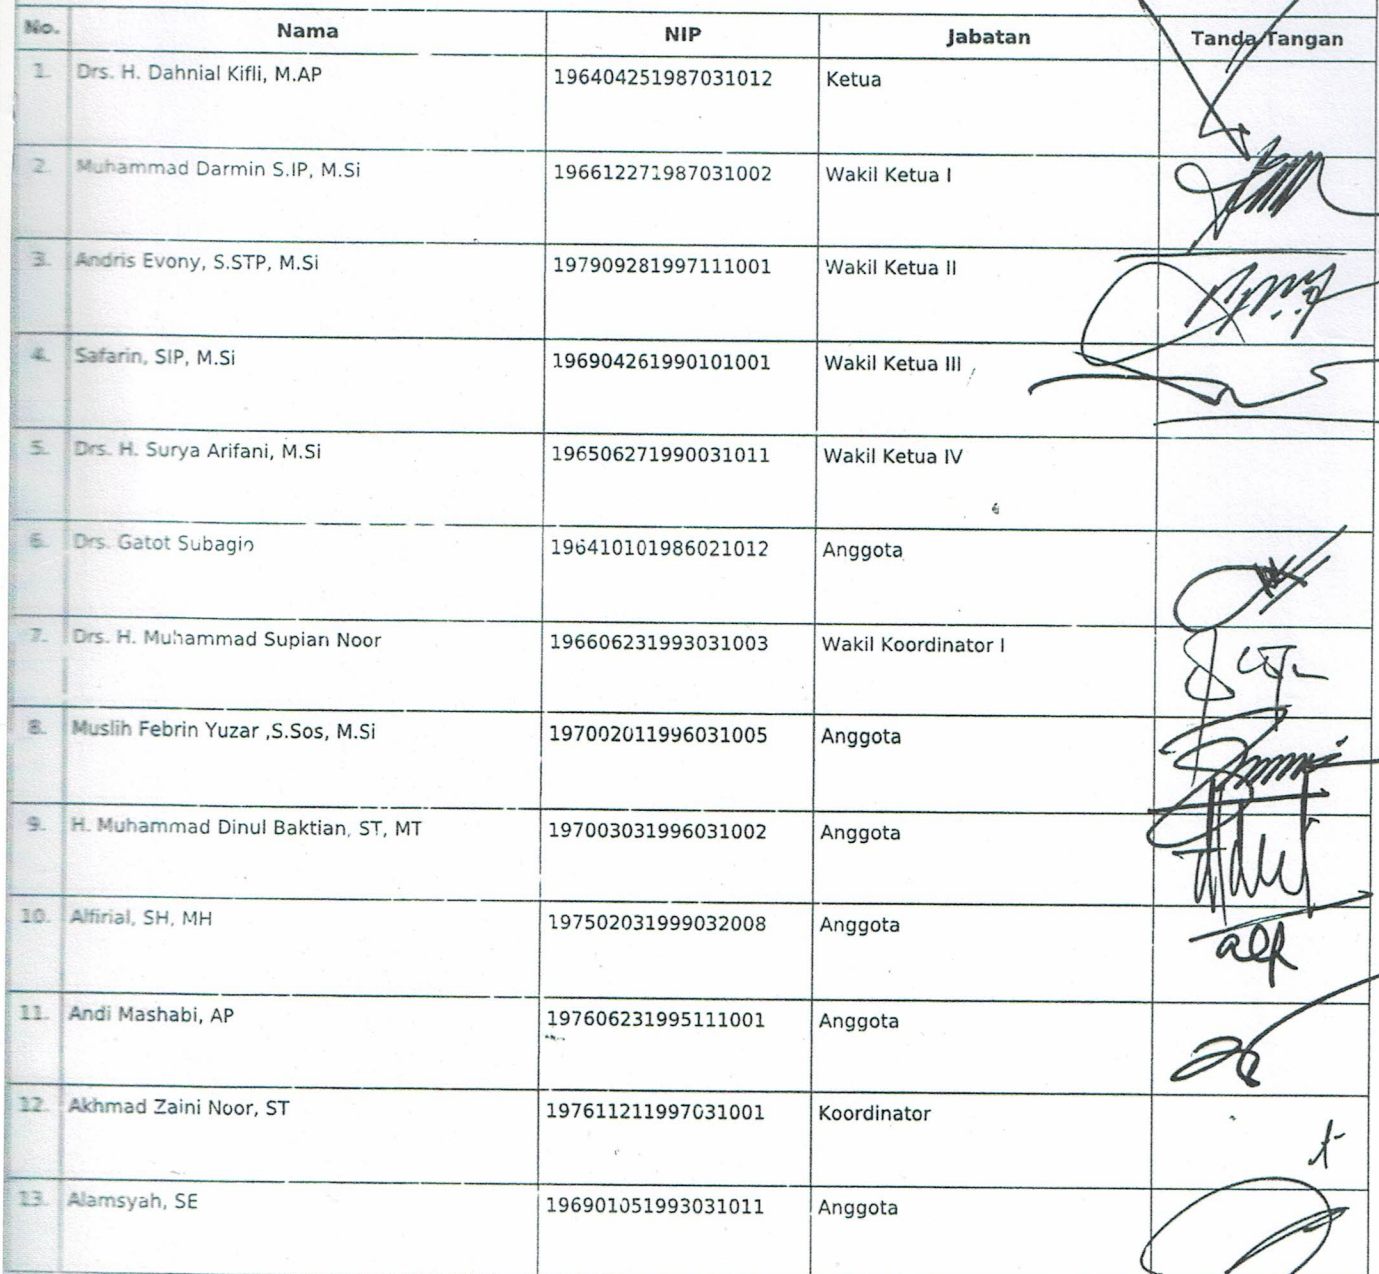 No. Nama NIP Jabatan Tanda Tangan
1. Drs. H. Dahnial Kifli, M.AP 196404251987031012 Ketua
2. Muhammad Darmin S.IP, M.Si 196612271987031002 Wakil Ketua I
3. Andris Evony, S.STP, M.Si 197909281997111001 Wakil Ketua II
4. Safarin, SIP, M.Si 196904261990101001 Wakil Ketua III
5. Drs. H. Surya Arifani, M.Si 196506271990031011 Wakil Ketua IV
6. Drs. Gatot Subagio 196410101986021012 Anggota
7. Drs. H. Muhammad Supian Noor 196606231993031003 Wakil Koordinator I
8. Muslih Febrin Yuzar ,S.Sos, M.Si 197002011996031005 Anggota
9. H. Muhammad Dinul Baktian, ST, MT 197003031996031002 Anggota
10. Alfirial, SH, MH 197502031999032008 Anggota
11. Andi Mashabi, AP 197606231995111001 Anggota
12. Akhmad Zaini Noor, ST 197611211997031001 Koordinator
13. Alamsyah, SE 196901051993031011 Anggota